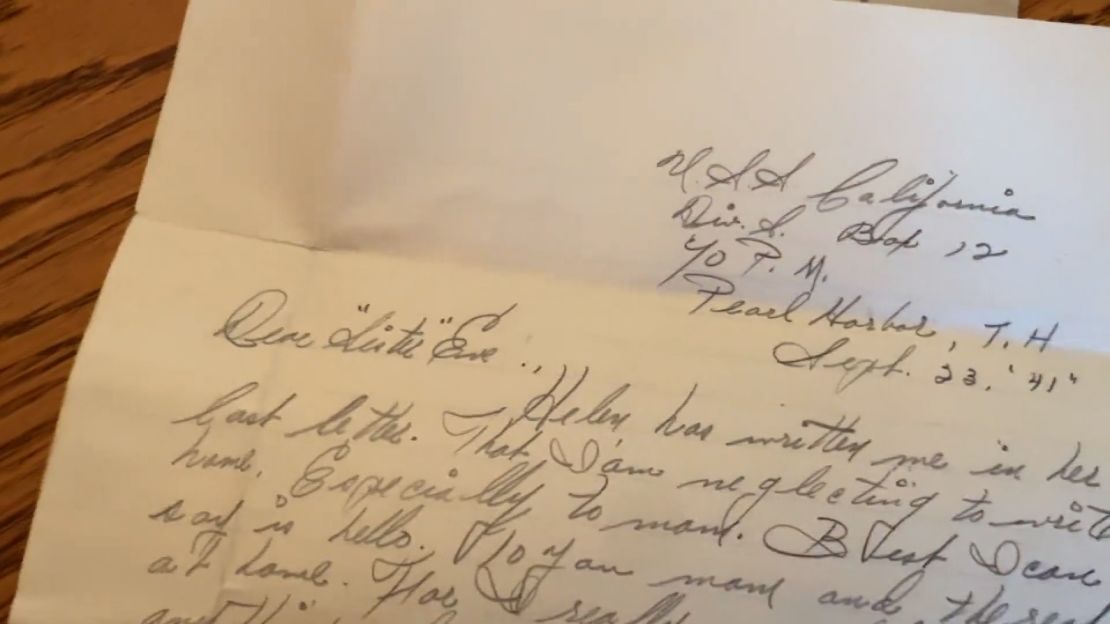 U.S.S California
Div. S. Box 12
℅ P. M.
Pearl Harbor, T. H
Sept. 23, "41"
Dear "Sister" Eve.,
Helen has written me in her
last letter. That I am neglecting to write
home. Especially to mom. But I can
say is hello. To you mom and the rest
at home. For I really